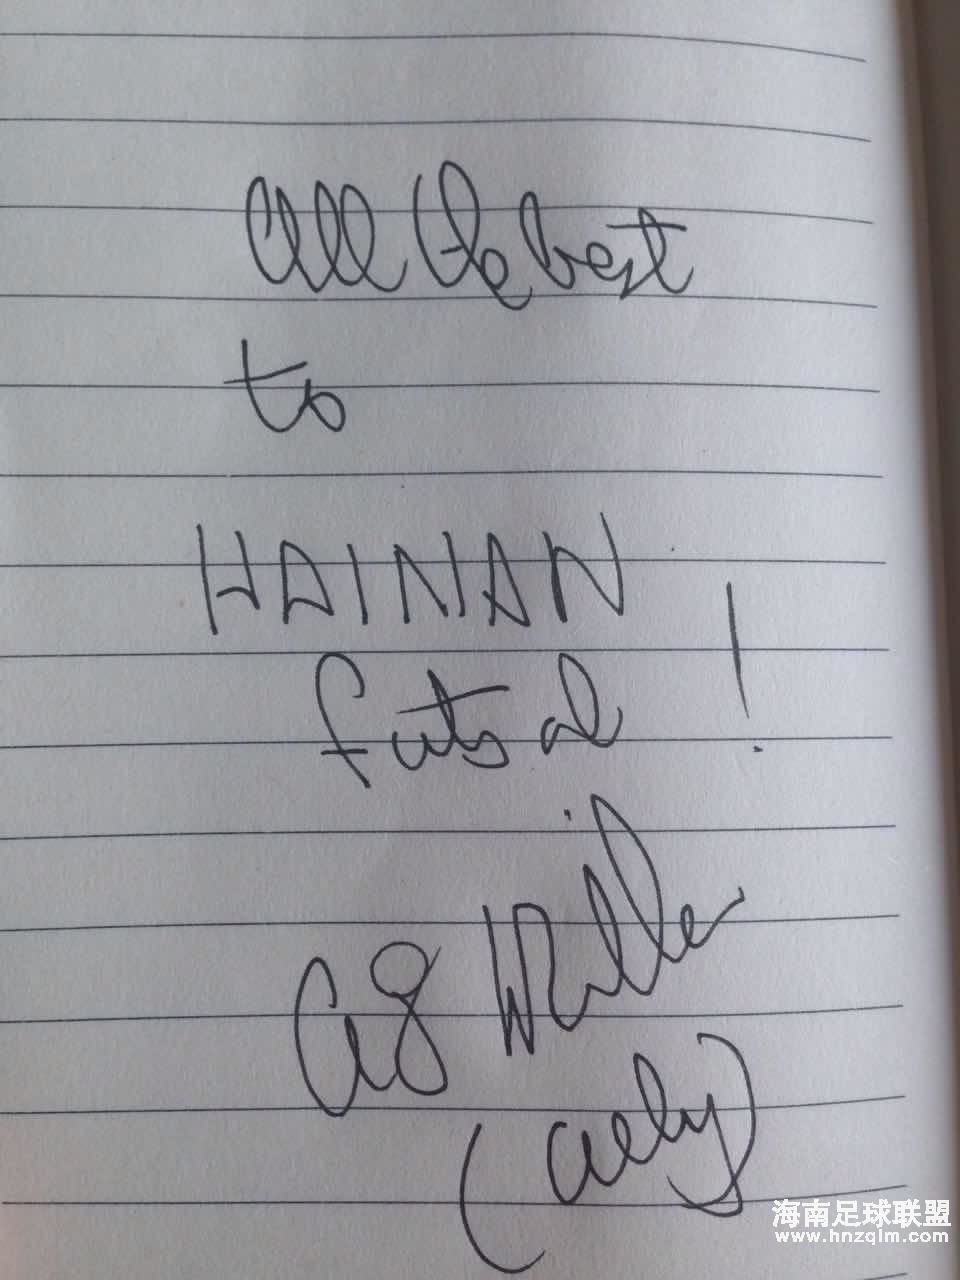 All the best
to
HAINAN
futsal !
海南足球联盟
www.hnzqlm.com